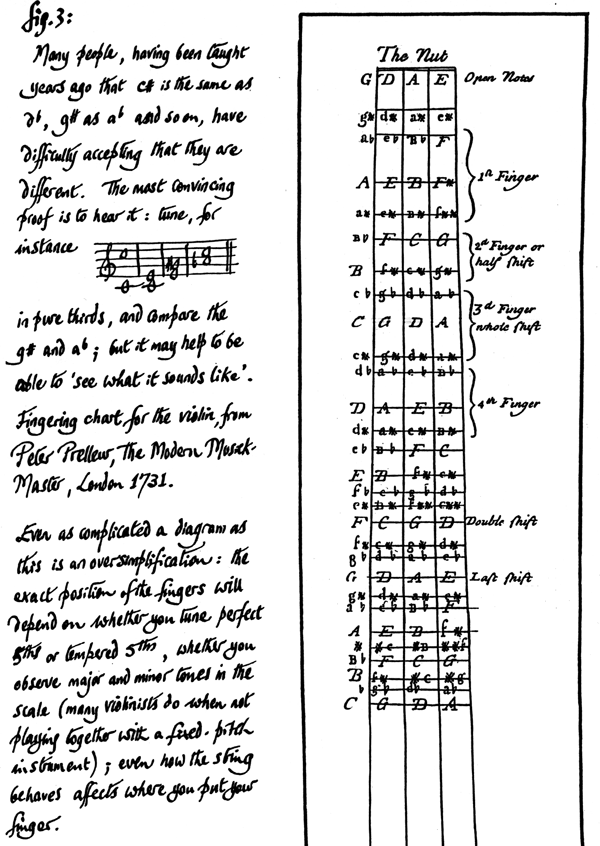 fig. 3:
Many people, having been taught
years ago that c# is the same as
d♭, g# as a♭ and so on, have
difficulty accepting that they are
different. The most convincing
proof is to hear it: tune, for
instance
in pure thirds, and compare the
g# and a♭; but it may help to be
able to 'see what it sounds like'.
Fingering chart for the violin, from
Peter Prelleur, The Modern Musick-
Master, London 1731.
Even as complicated a diagram as
this is an oversimplification: the
exact position of the fingers will
depend on whether you tune perfect
5ths or tempered 5ths, whether you
observe major and minor tones in the
scale (many violinists do when not
playing together with a fixed-pitch
instrument); even how the string
behaves affects where you put your
finger.
The Nut
G D A E Open Notes
g# d# a# e#
a♭ e♭ B♭ F
1st Finger
A E B F#
B♭ F C G
2d Finger or
half shift
B f# c# g#
c♭ g♭ d♭ a♭
3d Finger
whole shift
C G D A
c# g# d# a#
d♭ a♭ e♭ B♭
4th Finger
D A E B
d# a# e# B#
e♭ B♭ F C
E B f# c#
f♭ c♭ g♭ d♭
F C G D Double shift
f# c# g# d#
g♭ d♭ a♭ e♭
G D A E Last shift
g# d# a# e#
a♭ e♭ B♭ F
A E B f#
B♭ F C G
C G D A